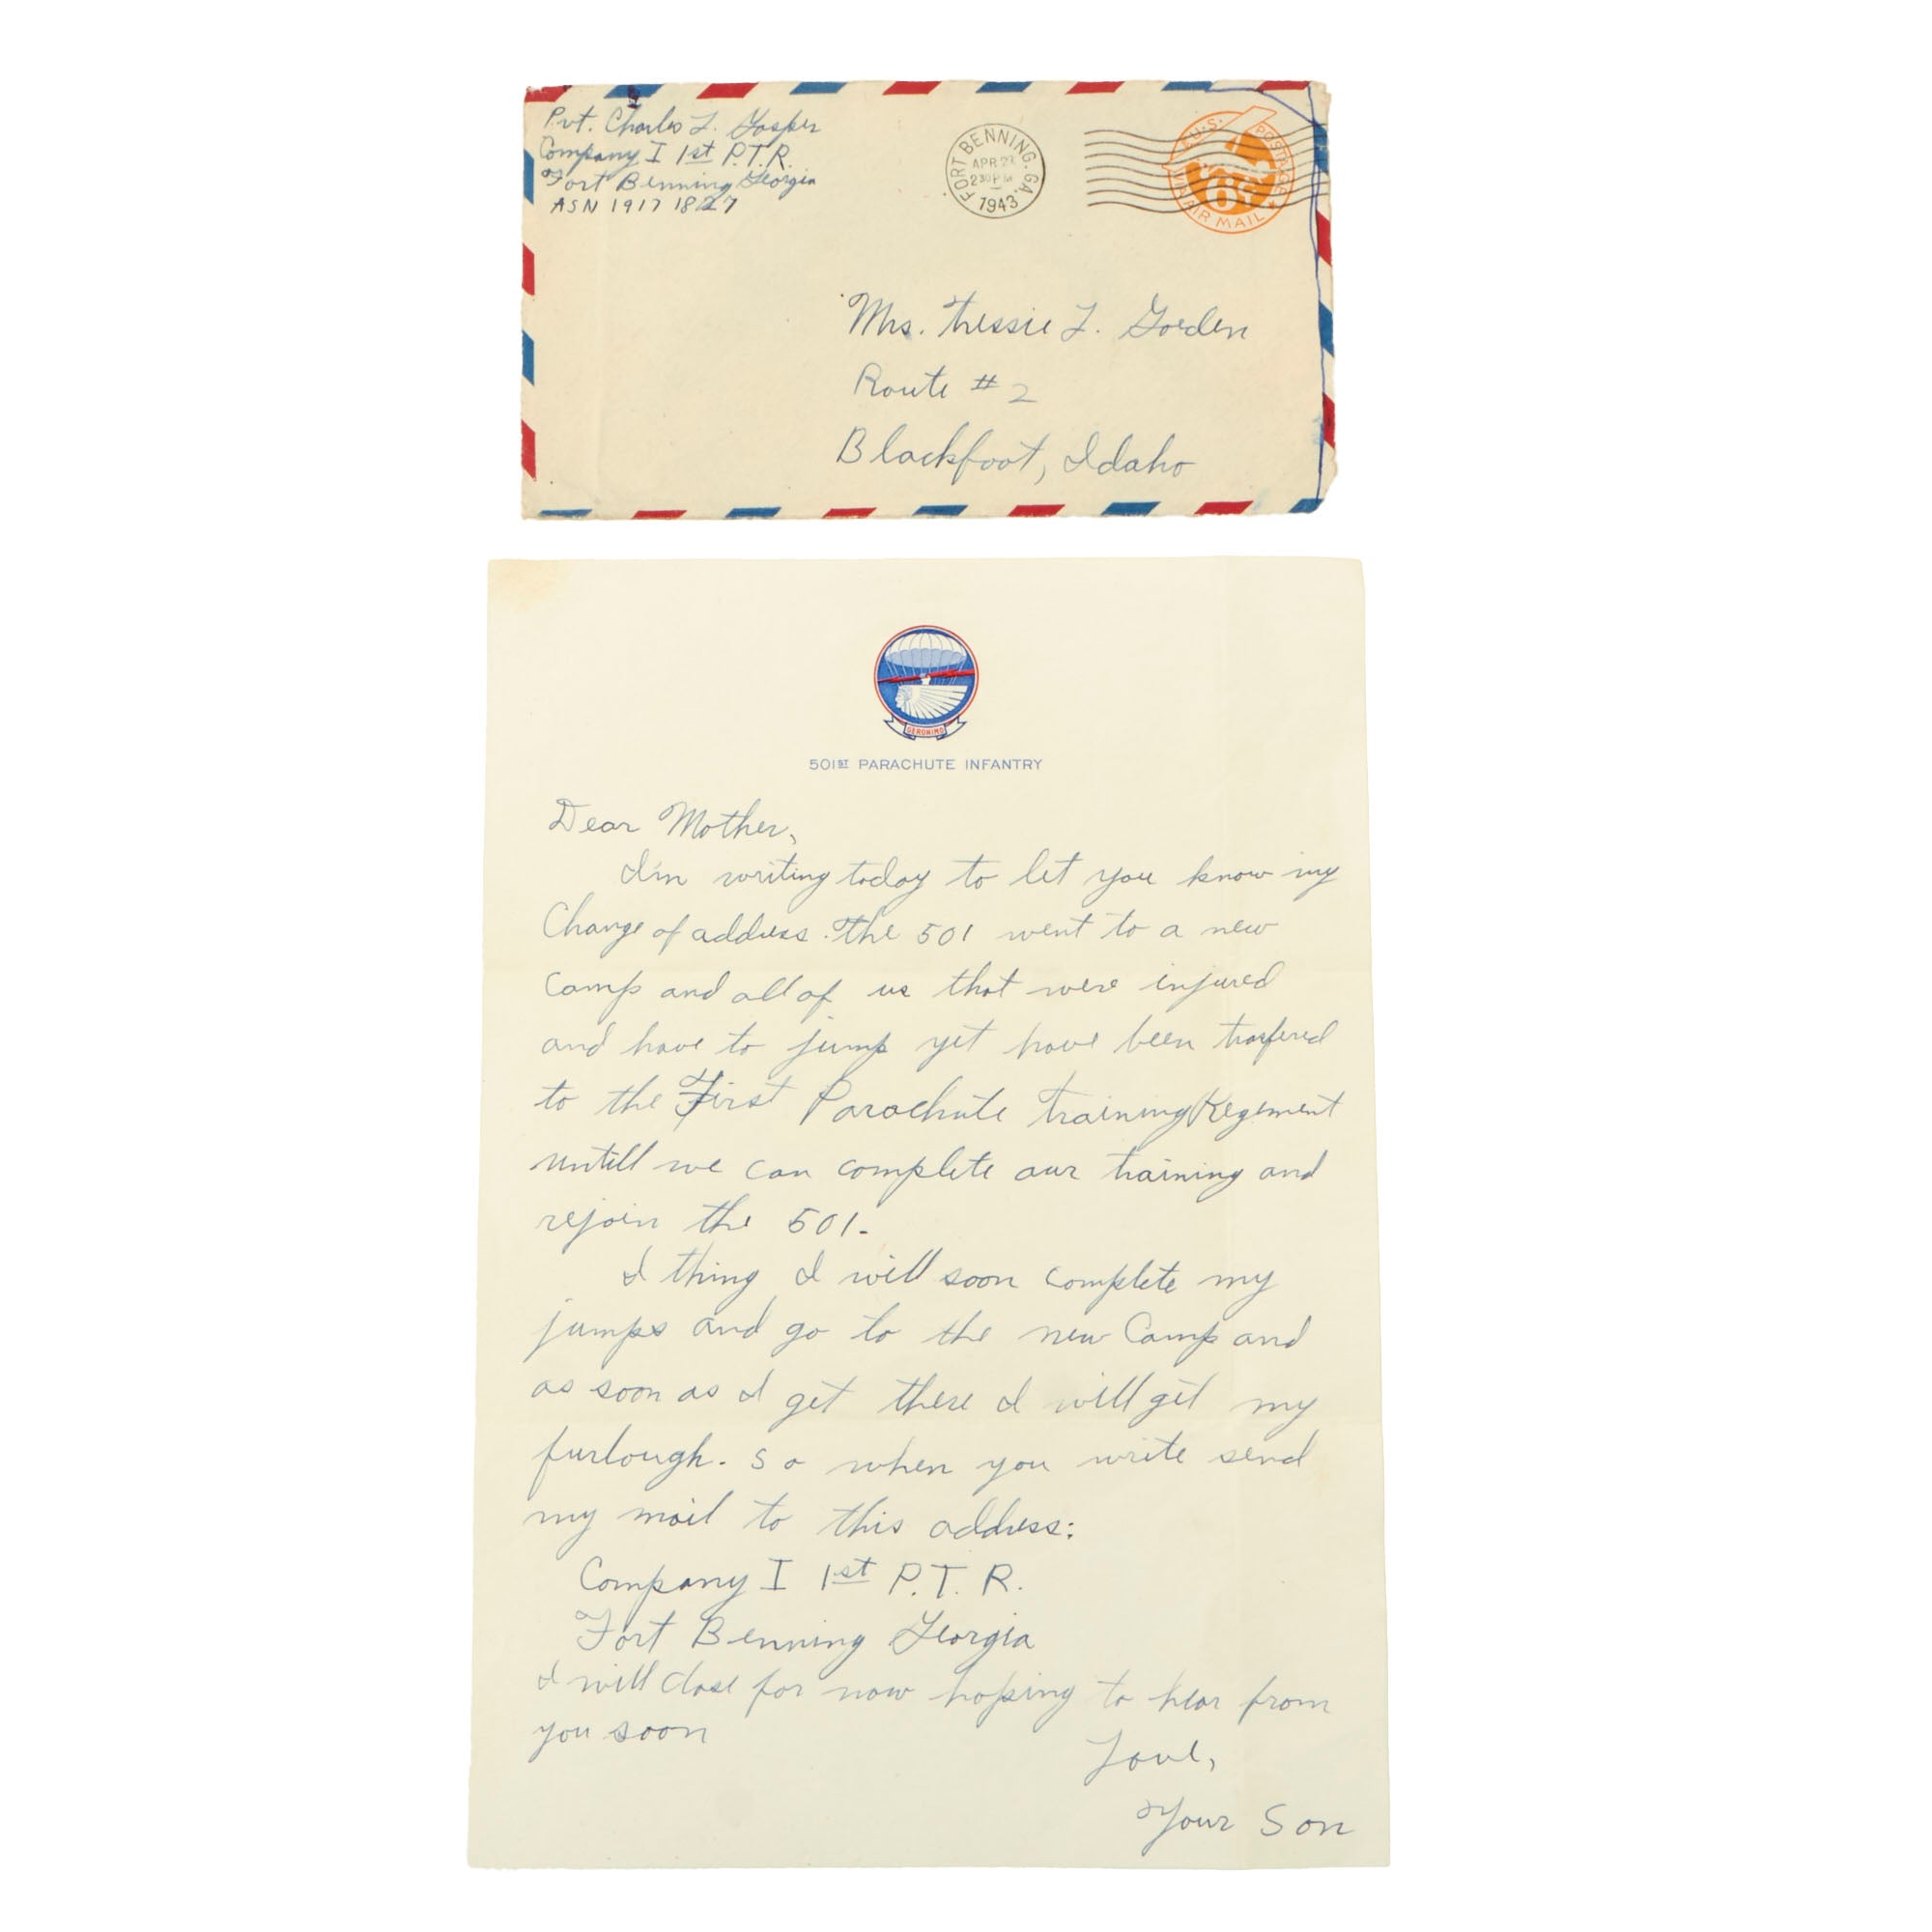 Pvt. Charles L. Gosper
Company I 1st P.T.R.
Fort Benning Georgia
ASN 1917 1827
FORT BENNING, GA.
APR 2
2 30 PM
1943
U.S. POSTAGE
6¢
VIA AIR MAIL
Mrs. Tressie L. Gorden
Route # 2
Blackfoot, Idaho
GERONIMO
501ST PARACHUTE INFANTRY
Dear Mother,
I'm writing today to let you know my
Change of address. The 501 went to a new
Camp and all of us that were injured
and have to jump yet have been trasfered
to the First Parachute training Regement
untill we can complete our training and
rejoin the 501.
I thing I will soon complete my
jumps and go to the new Camp and
as soon as I get there I will get my
furlough. So when you write send
my mail to this address:
Company I 1st P.T.R.
Fort Benning Georgia
I will close for now hoping to hear from
you soon
Love,
Your Son